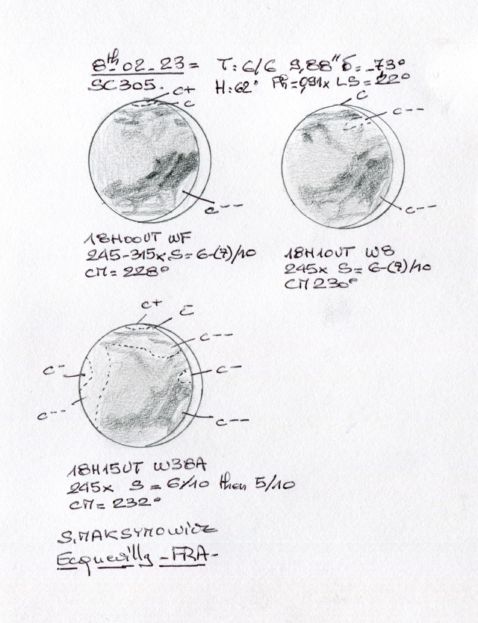 8th 02-23= T: 6/6 9,88" δ= -7,3°
SC305. H: 62° Ph=0,91x LS= 22°
C+
C
C--
18H00UT WF
245-315x S= 6-(7)/10
CM= 228°
C
C--
C--
18H10UT W8
245x S= 6-(7)/10
CM 230°
C+
C
C--
C-
C-
C--
C--
18H15UT W38A
245x S= 6/10 then 5/10
CM= 232°
S.MAKSYMOWICZ
Ecquevilly -FRA-